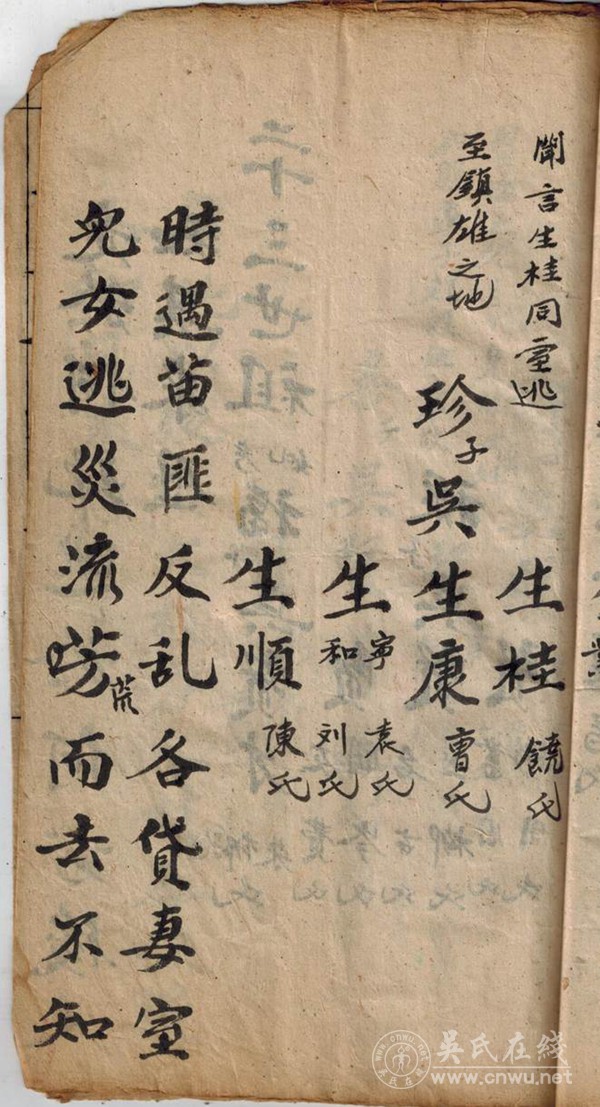 聞言生桂同逃
至鎮雄之地
生桂 饒氏
珍子吳生康 曹氏
生寧 袁氏
和 刘氏
生順 陳氏
時遇苗匪反乱各貸妻室
兒女逃災流荒而去不知
吳氏在线
www.cnwu.net